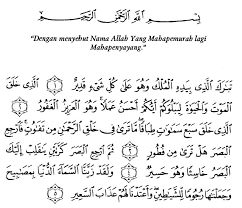 بِسْمِ اللَّهِ الرَّحْمَٰنِ الرَّحِيمِ
“Dengan menyebut Nama Allah Yang Mahapemurah lagi
Mahapenyayang.”
تَبَارَكَ الَّذِي بِيَدِهِ الْمُلْكُ وَهُوَ عَلَىٰ كُلِّ شَيْءٍ قَدِيرٌ ۝ الَّذِي خَلَقَ
الْمَوْتَ وَالْحَيَاةَ لِيَبْلُوَكُمْ أَيُّكُمْ أَحْسَنُ عَمَلًا وَهُوَ الْعَزِيزُ الْغَفُورُ ۝
الَّذِي خَلَقَ سَبْعَ سَمَاوَاتٍ طِبَاقًا مَّا تَرَىٰ فِي خَلْقِ الرَّحْمَٰنِ مِن تَفَاوُتٍ فَارْجِعِ
الْبَصَرَ هَلْ تَرَىٰ مِن فُطُورٍ ۝ ثُمَّ ارْجِعِ الْبَصَرَ كَرَّتَيْنِ يَنقَلِبْ إِلَيْكَ
الْبَصَرُ خَاسِئًا وَهُوَ حَسِيرٌ ۝ وَلَقَدْ زَيَّنَّا السَّمَاءَ الدُّنْيَا بِمَصَابِيحَ
وَجَعَلْنَاهَا رُجُومًا لِّلشَّيَاطِينِ وَأَعْتَدْنَا لَهُمْ عَذَابَ السَّعِيرِ